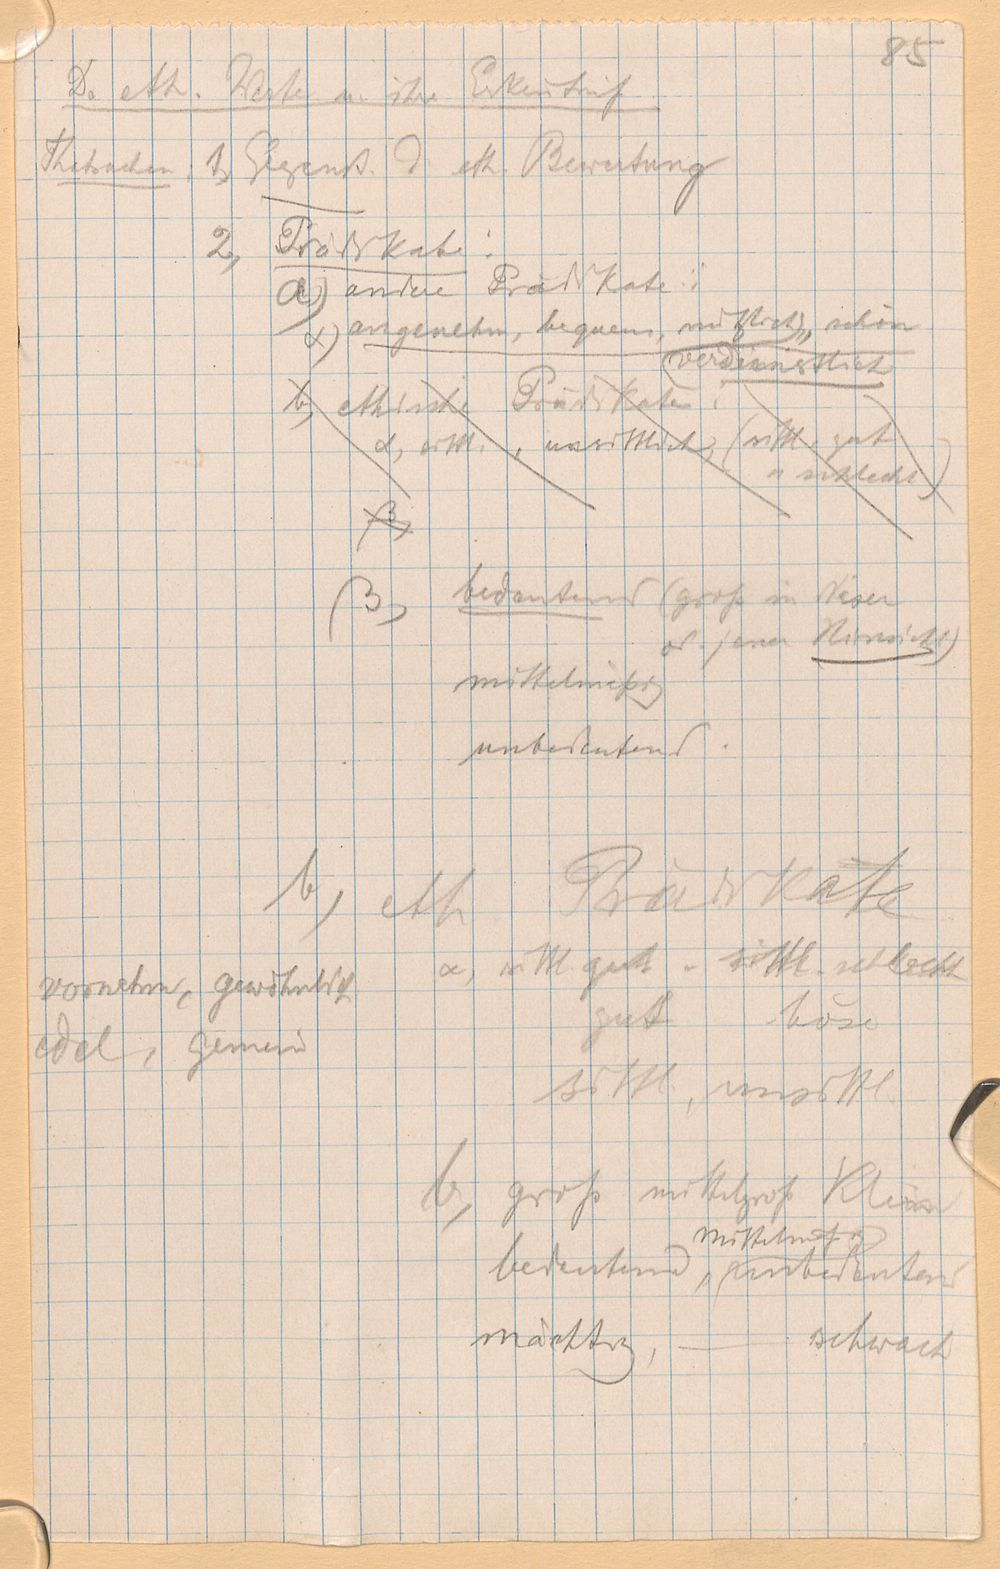 85
D. eth. Werte u. ihre Erkenntnis
Thatsachen: 1, Gegenst. d. eth. Bewertung
2, Prädikate:
a) andere Prädikate:
α) angenehm, bequem, nützlich, schön
(verdienstlich
b, ethische Prädikate:
α, sittl., unsittlich, (sittl. gut
u schlecht)
β,
β, bedeutend (groß in dieser
od. jener Hinsicht)
mittelmäßig
unbedeutend.
b, eth Prädikate
α, sittl. gut u sittl. schlecht
vornehm, gewöhnlich
gut böse
edel, gemein
sittl., unsittl.
b, groß mittelgroß klein
mittelmäßig
bedeutend, unbedeutend
mächtig, — schwach